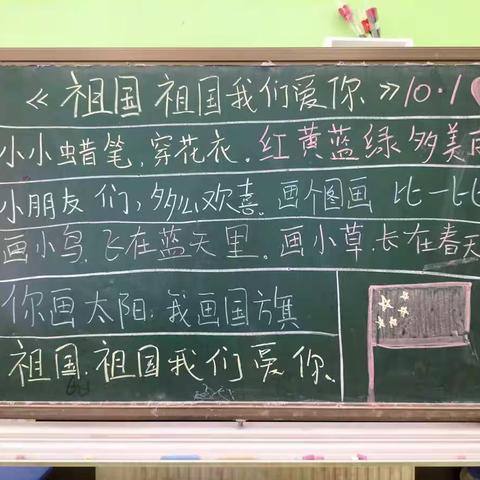 《祖国 祖国我们爱你》10.1
小小蜡笔,穿花衣。红黄蓝绿多美丽
小朋友们,多么欢喜。画个图画 比一比
画小鸟,飞在蓝天里。画小草,长在春天
你画太阳,我画国旗
祖国,祖国我们爱你。